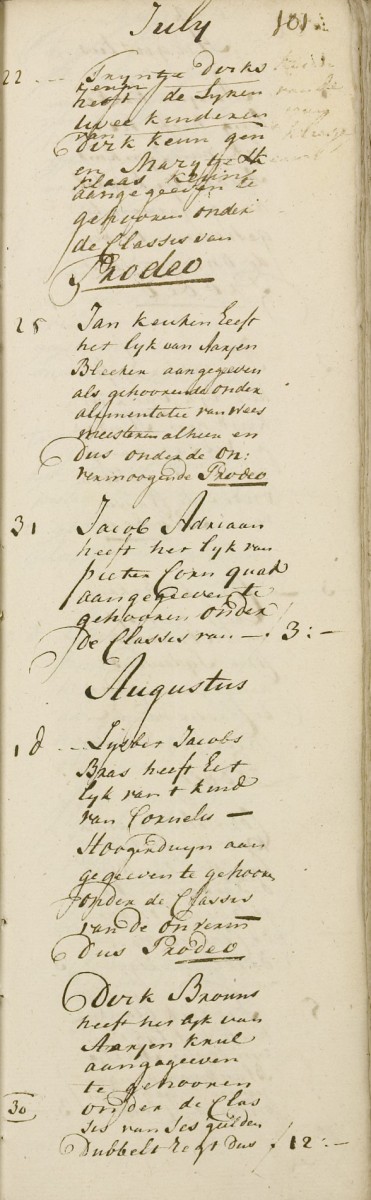 July 101
22 Tryntje Dirks
heeft de Lyken
twee kinderen
van
Dirk Keun gen
en Marytje
Klaas
aangegeeven te
gehooren onder
de Classis van
Prodeo
28 Jan Keuken Eeft
het lyk van Aarjen
Bleeker aangegeven
als gehoorende onder
alimentatie van wees
meesteren alhier en
Dus onder de on:
vermoogende Prodeo
31 Jacob Adriaan
heeft het lyk van
pieter Corn quak
aangegieven te
gehooren onder
de Classes van — f 3:-
Augustus
18 Jacobs
Baas heeft Eet
lyk van t kind
van Cornelis —
Hoogenduyn aan
gegeven te gehooren
onder de Classes
van de onverm
Dus Prodeo
Dirk Brouns
heeft het lyk van
Aarjen Knul
aangegeeven
te gehooren
30 onder de Clas
ses van ses gulden
Dubbelt regt Dus f 12:-